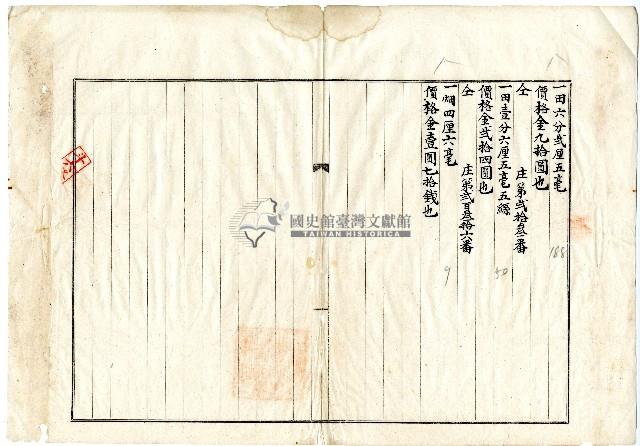 一田六分弐厘五毫
價格金九拾圓也
仝　庄第弐拾叁番
一田壹分六厘五毫五絲
價格金弐拾四圓也
仝　庄第弐百叁拾六番
一畑四厘六毫
價格金壹圓七拾錢也
188
50
9
國史館臺灣文獻館
TAIWAN HISTORICA